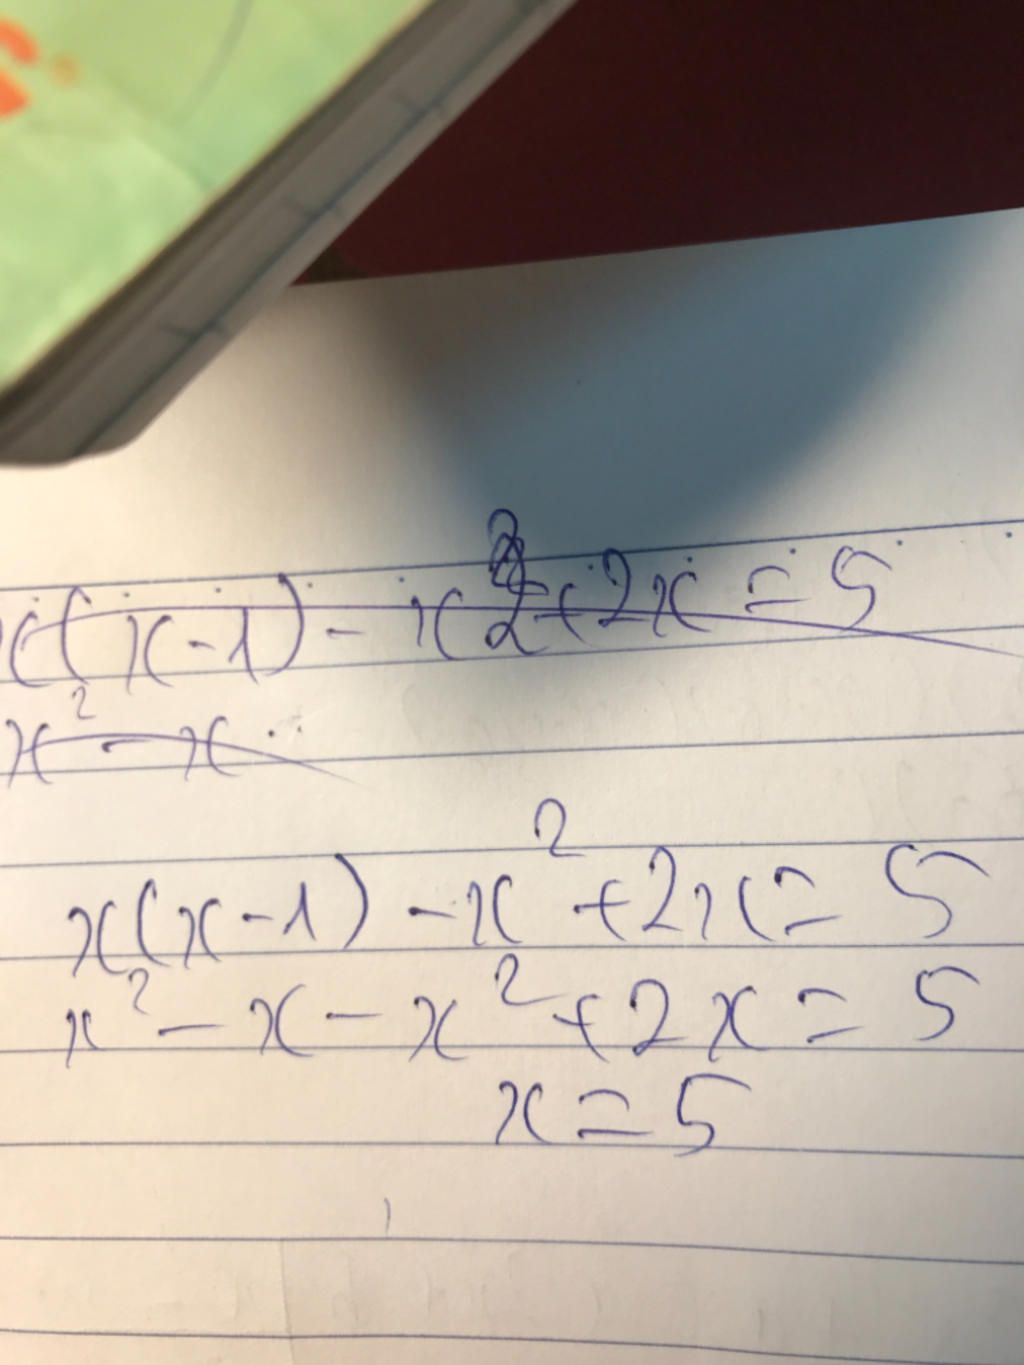 x(x-1) - x²+2x = 5
x² - x
x(x-1) - x² +2x = 5
x² - x - x² + 2x = 5
x = 5